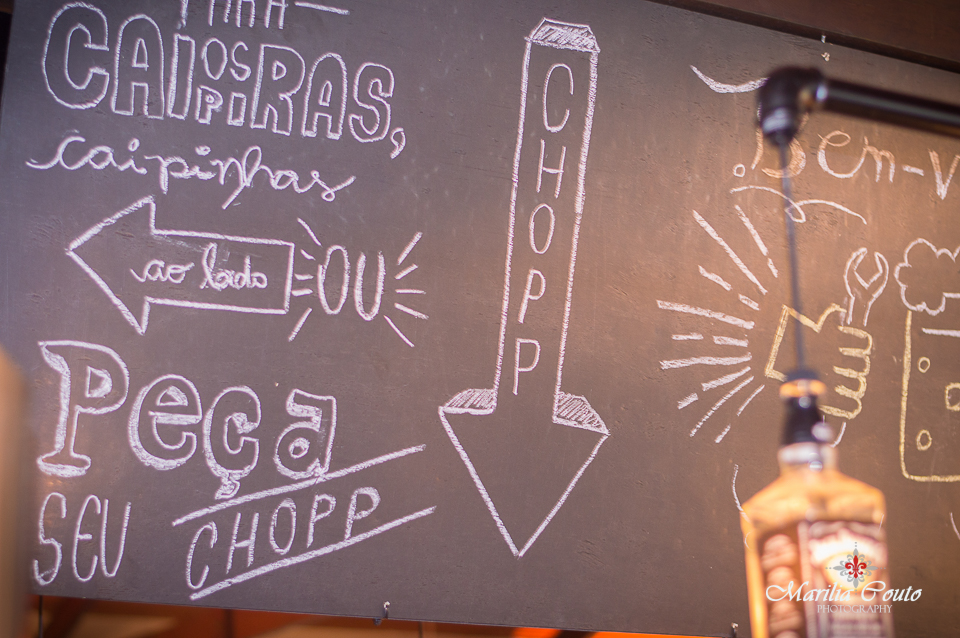 PARA
CAIPIRAS,
OS
PI
caipinhas
ao lado
OU
Peça
SEU CHOPP
CHOPP
Bem-v
Marilia Couto
PHOTOGRAPHY